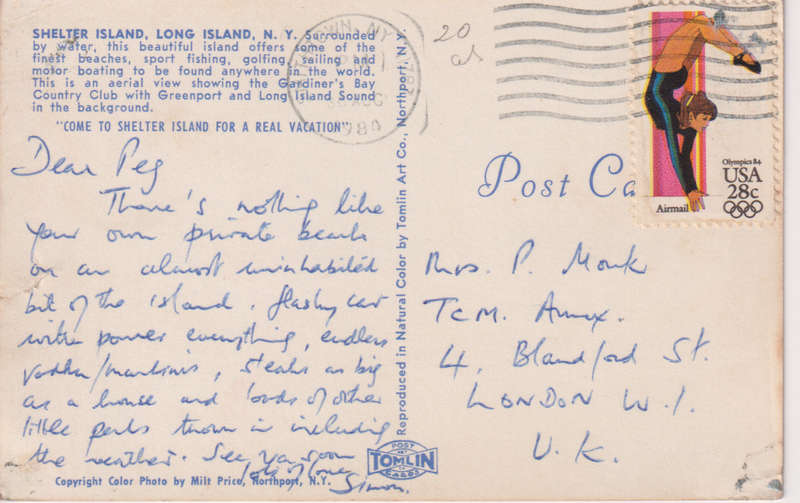 SHELTER ISLAND, LONG ISLAND, N. Y. Surrounded
by water, this beautiful island offers some of the
finest beaches, sport fishing, golfing, sailing and
motor boating to be found anywhere in the world.
This is an aerial view showing the Gardiner's Bay
Country Club with Greenport and Long Island Sound
in the background.
"COME TO SHELTER ISLAND FOR A REAL VACATION"
Dear Peg
There's nothing like
your own private beach
on an almost uninhabited
bit of the island. flashy car
with power everything, endless
vodka/martinis, steaks as big
as a house and loads of other
little perks thrown in including
the weather. See you soon
lots of love
Simon.
Copyright Color Photo by Milt Price, Northport, N.Y.
Reproduced in Natural Color by Tomlin Art Co., Northport, N.Y.
POST
TOMLIN
CARDS
20
NY
1984
Post Ca
Olympics 84
USA
28c
Airmail
Mrs. P. Monk
TCM. Annex.
4, Blandford St.
LONDON W.1.
U.K.